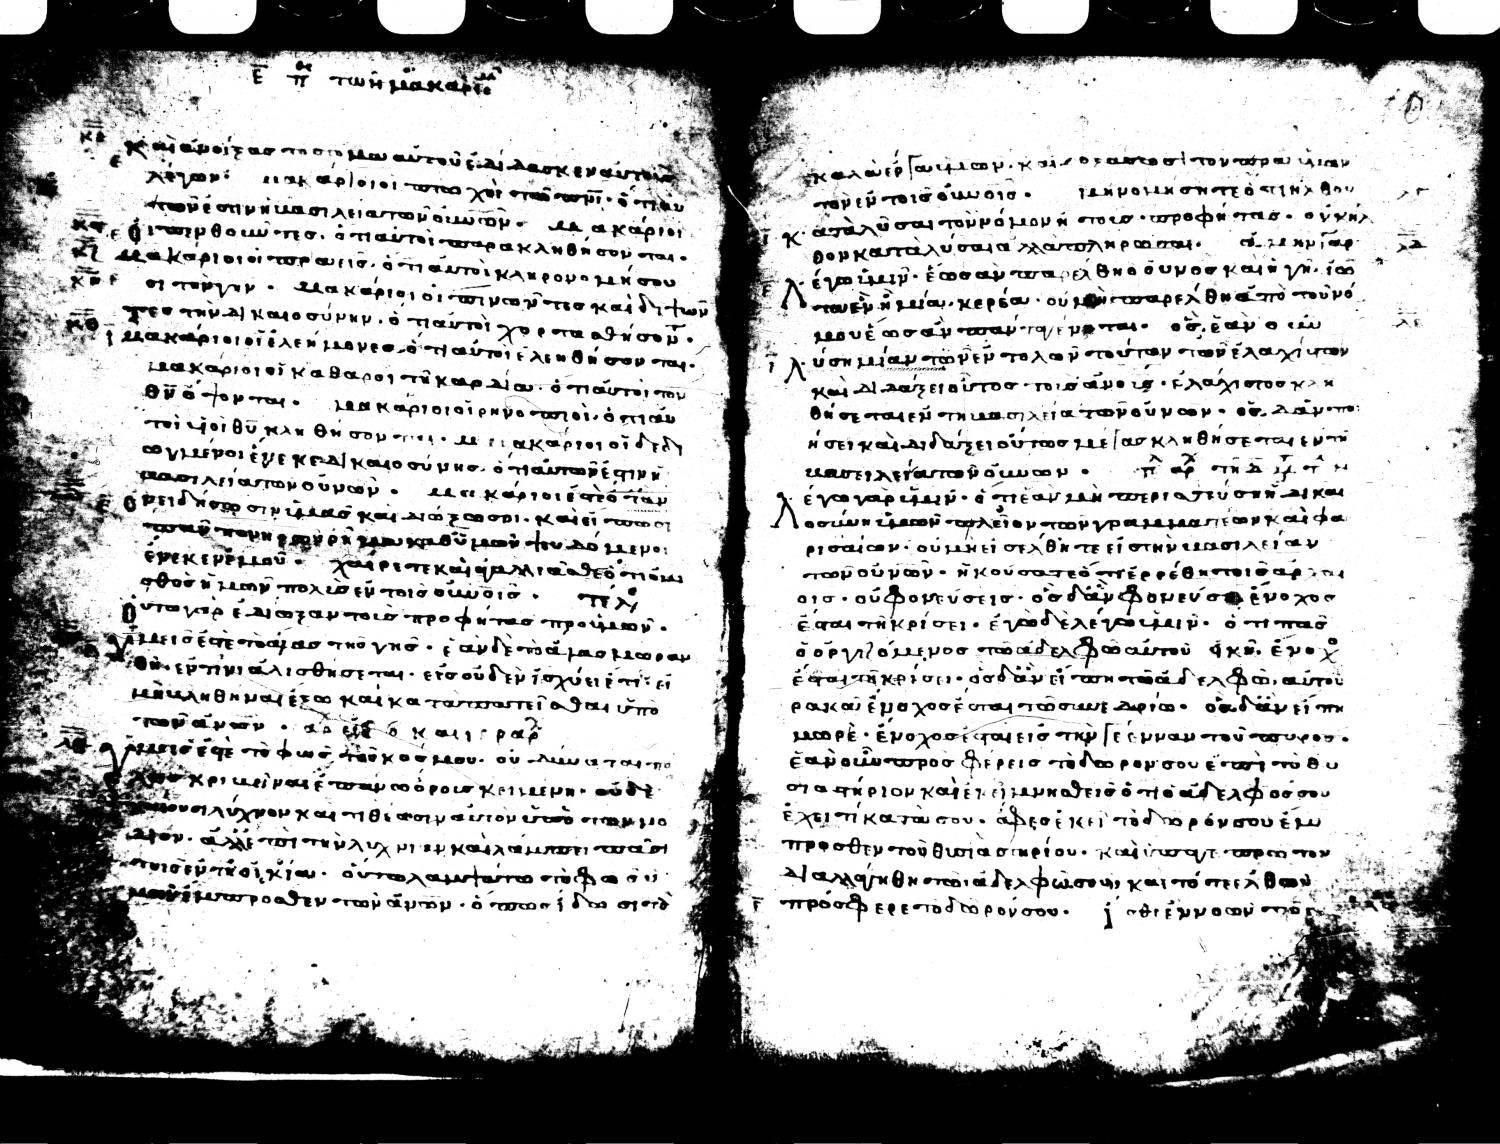 Ε πε των μακαρι
και ανοιξας το στομα αυτου εδιδασκεν αυτους
λεγων· μακαριοι οι πτωχοι τω πνι· οτι αυ
των εστιν η βασιλεια των ουνων· μακαριοι
οι πενθουντες· οτι αυτοι παρακληθησονται·
μακαριοι οι πραεις· οτι αυτοι κληρονομησου
σι την γην· μακαριοι οι πινωντες και διψων
τες την δικαιοσυνην· οτι αυτοι χορτασθησον·
μακαριοι οι ελεημονες· οτι αυτοι ελεηθησονται·
μακαριοι οι καθαροι τη καρδια· οτι αυτοι τον
θν οψονται· μακαριοι οι ρηνοποιοι· οτι αυ
τοι υιοι θυ κληθησονται· μακαριοι οι δεδι
ωγμενοι ενεκε δικαιοσυνης· οτι αυτων εστιν η
βασιλεια των ουνων· μακαριοι εστε οταν
ονειδησωσιν υμας και διωξωσι· και ειπωσι
παν πονηρων ρημα καθ υμων ψευδομενοι
ενεκεν εμου· χαιρετε και αγαλλιασθε οτι ο μι
σθος ημων πολυς εν τοις ουνοις· τελ
ουτω γαρ εδιωξαν τους προφητας προ υμων·
υμεις εστε το αλας της γης· εαν δε το αλας μωραν
θη· εν τινι αλισθησεται· εις ουδεν ισχυει ετι· ει
μη βληθηναι εξω και καταπατεισθαι υπο
των ανων·
υμεις εστε το φως του κοσμου· ου δυναται πο
λις κρυβηναι επανω ορους κειμενη· ουδε
καιουσι λυχνον και τιθεασιν αυτον υπο τον μο
διον· αλλ επι την λυχνιαν και λαμπει πασι
τοις εν τη οικια· ουτω λαμψατω το φως υ
μων εμπροσθεν των ανων· οπως ιδωσι τα
καλα εργα υμων· και δοξασωσι τον πρα υμων
τον εν τοις ουνοις· μη νομησητε οτι ηλθον
καταλυσαι τον νομον η τους προφητας· ουκ ηλ
θον καταλυσαι αλλα πληρωσαι· αμην γαρ
λεγω υμιν· εως αν παρελθη ο ουνος και η γη· ιω
τα εν η μια κερεα· ου μη παρελθη απο του νο
μου εως αν παντα γενηται· ος εαν ουν
λυση μιαν των εντολων τουτων των ελαχιστων
και διδαξει ουτος τους ανους· ελαχιστος κλη
θησεται εν τη βασιλεια των ουνων· ος δ αν ποι
ησει και διδαξει ουτος μεγας κληθησεται εν τη
βασειλεια των ουνων·
λεγω γαρ υμιν· οτι εαν μη περισσευση η δικαι
οσυνη υμων πλειον των γραμματεων και φα
ρισαιων· ου μη εισελθητε εις την βασιλειαν
των ουνων· ηκουσατε οτι ερρεθη τοις αρχαι
οις· ου φονευσεις· ος δ αν φονευση ενοχος
εσται τη κρισει· εγω δε λεγω υμιν· οτι πας
ο οργιζομενος τω αδελφω αυτου εικη· ενοχ
εσται τη κρισει· ος δ αν ειπη τω αδελφω αυτου
ρακα ενοχος εσται τω συνεδριω· ος δ αν ειπη
μωρε· ενοχος εσται εις την γεενναν του πυρος·
εαν ουν προσφερεις το δωρον σου επι το θυ
σιαστηριον και εκει μνησθεις οτι ο αδελφος σου
εχει τι κατα σου· αφες εκει το δωρον σου εμ
προσθεν του θυσιαστηριου· και υπαγε πρωτον
διαλλαγηθι τω αδελφω σου και τοτε ελθων
προσφερε το δωρον σου· ισθι ευνοων